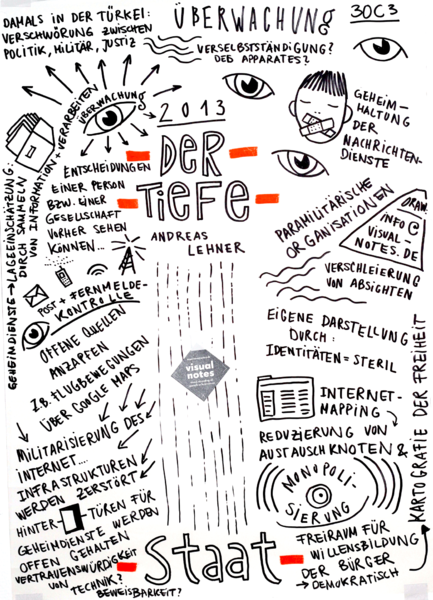 DAMALS IN DER TÜRKEI:
VERSCHWÖRUNG ZWISCHEN
POLITIK, MILITÄR, JUSTIZ
ÜBERWACHUNG
30C3
VERSELBSTSTÄNDIGUNG?
DES APPARATES?
ÜBERWACHUNG
GEHEIMDIENSTE → LAGEEINSCHÄTZUNG:
DURCH SAMMELN
VON INFORMATION + VERARBEITEN
2013
DER
TIEFE
ANDREAS
LEHNER
GEHEIM-
HALTUNG
DER
NACHRICHTEN-
DIENSTE
ENTSCHEIDUNGEN
EINER PERSON
BZW. EINER
GESELLSCHAFT
VORHER SEHEN
KÖNNEN...
PARAMILITÄRISCHE
ORGANISATIONEN
DRAW.
INFO @
VISUAL-
NOTES.DE
VERSCHLEIERUNG
VON ABSICHTEN
POST + FERNMELDE-
KONTROLLE
OFFENE QUELLEN
ANZAPFEN
Z.B. FLUGBEWEGUNGEN
ÜBER GOOGLE MAPS
visual
notes
EIGENE DARSTELLUNG
DURCH:
IDENTITÄTEN = STERIL
MILITARISIERUNG DES
INTERNET...
INFRASTRUKTUREN
WERDEN ZERSTÖRT
INTERNET-
MAPPING
REDUZIERUNG VON
AUSTAUSCHKNOTEN &
MONOPOLI-
SIERUNG
KARTOGRAFIE DER FREIHEIT
HINTER- TÜREN FÜR
GEHEIMDIENSTE WERDEN
OFFEN GEHALTEN
VERTRAUENSWÜRDIGKEIT
VON
TECHNIK?
BEWEISBARKEIT?
Staat
FREIRAUM FÜR
WILLENSBILDUNG
DER BÜRGER
→ DEMOKRATISCH